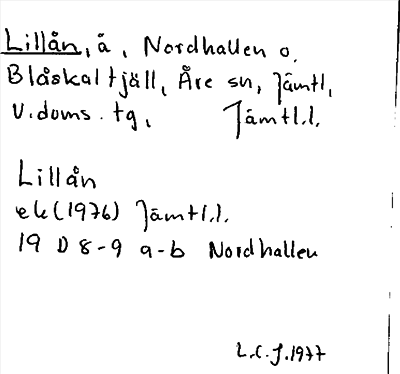 Lillån, å, Nordhallen o.
Blåskaltjäll, Åre sn, Jämtl,
V.doms. tg, Jämtl.l.
Lillån
ek (1976) Jämtl.l.
19 D 8-9 a-b Nordhallen
L.C.J. 1977